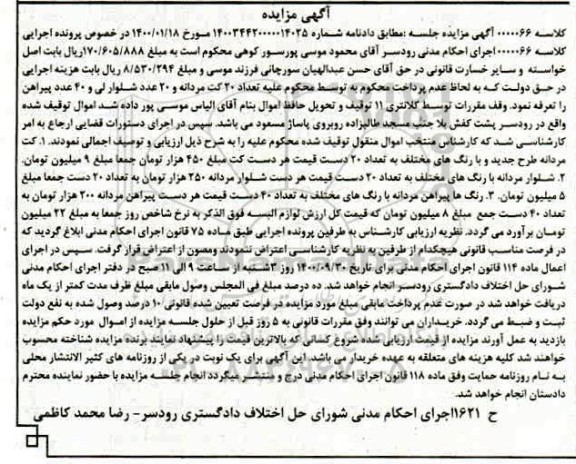 آگهی مزایده
کلاسه ۰۰۰۰۰۶۶ آگهی مزایده جلسه :مطابق دادنامه شماره ۱۴۰۰۳۴۴۲۰۰۰۰۰۱۴۰۲۵ مورخ ۱۴۰۰/۰۱/۱۸ در خصوص پرونده اجرایی
کلاسه ۰۰۰۰۰۶۶ اجرای احکام مدنی رودسر آقای محمود موسی پورسور کوهی محکوم است به مبلغ ۱۷۰/۶۰۵/۸۸۸ریال بابت اصل
خواسته و سایر خسارت قانونی در حق آقای حسن عبدالهیان سورچانی فرزند موسی و مبلغ ۸/۵۳۰/۲۹۴ ریال بابت هزینه اجرایی
در حق دولت که به لحاظ عدم پرداخت محکوم به توسط محکوم علیه تعداد ۲۰ کت مردانه و ۲۰ عدد شلوار لی و ۴۰ عدد پیراهن
را تعرفه نمود. وفف مقررات توسط کلانتری ۱۱ توقیف و تحویل حافظ اموال بنام آقای الیاس موسی پور داده شد اموال توقیف شده
واقع در رودسر پشت کفش بلا جنب مسجد طالبزاده روبروی پاساژ مسعود می باشد. سپس در اجرای دستورات قضایی ارجاع به امر
کارشناسی شد که کارشناس منتخب اموال منقول توقیف شده محکوم علیه را به شرح ذیل ارزیابی و توصیف اجمالی نمودند. ۱. کت
مردانه طرح جدید و با رنگ های مختلف به تعداد ۲۰ دست قیمت هر دست کت مبلغ ۴۵۰ هزار تومان جمعا مبلغ ۹ میلیون تومان.
۲. شلوار مردانه با رنگ های مختلف به تعداد ۲۰ دست قیمت هر دست شلوار مردانه ۲۵۰ هزار تومان به تعداد ۲۰ دست جمعا مبلغ
۵ میلیون تومان. ۳. رنگ ها پیراهن مردانه با رنگ های مختلف به تعداد ۴۰ دست قیمت هر دست پیراهن مردانه ۲۰۰ هزار تومان به
تعداد ۴۰ دست جمع مبلغ ۸ میلیون تومان که قیمت کل ارزش لوازم البسه فوق الذکر به نرخ شاخص روز جمعا به مبلغ ۲۲ میلیون
تومان برآورد می گردد. نظریه ارزیابی کارشناس به طرفین پرونده اجرایی طبق ماده ۷۵ قانون اجرای احکام مدنی ابلاغ گردید که
در فرصت مناسب قانونی هیچکدام از طرفین به نظریه کارشناسی اعتراض ننمودند ومصون از اعتراض قرار گرفت. سپس در اجرای
اعمال ماده ۱۱۴ قانون اجرای احکام مدنی برای تاریخ ۱۴۰۰/۰۹/۳۰ روز ۳شنبه از ساعت ۹ الی ۱۱ صبح در دفتر اجرای احکام مدنی
شورای حل اختلاف دادگستری رودسر انجام خواهد شد. ده درصد مبلغ فی المجلس وصول مابقی مبلغ ظرف مدت کمتر از یک ماه
دریافت خواهد شد در صورت عدم پرداخت مابقی مبلغ مورد مزایده در فرصت تعیین شده قانونی ۱۰ درصد وصول شده به نفع دولت
ثبت و ضبط می گردد. خریداران می توانند وفق مقررات قانونی به ۵ روز قبل از حلول جلسه مزایده از اموال مورد حکم مزایده
بازدید به عمل آورند مزایده از قیمت ارزیابی شده شروع کسانی که بالاترین قیمت را پیشنهاد نمایند برنده مزایده شناخته محسوب
خواهند شد کلیه هزینه های متعلقه به عهده خریدار می باشد. این آگهی برای یک نوبت در یکی از روزنامه های کثیر الانتشار محلی
به نام روزنامه حمایت وفق ماده ۱۱۸ قانون اجرای احکام مدنی درج و منتشر میگردد انجام جلسه مزایده با حضور نماینده محترم
دادستان انجام خواهد شد.
ح ۱۶۲۱اجرای احکام مدنی شورای حل اختلاف دادگستری رودسر- رضا محمد کاظمی